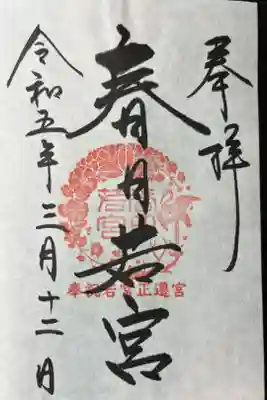 奉拝
春日若宮
奉祝若宮正遷宮
令和五年三月十二日